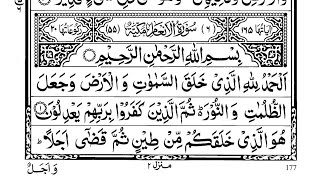 آیاتها ۱۶۵ (۶) سُوْرَةُ الْاَنْعَامِ مَكِّيَّةٌ (۵۵) رکوعاتها ۲۰
بِسْمِ اللّٰهِ الرَّحْمٰنِ الرَّحِيْمِ
اَلْحَمْدُ لِلّٰهِ الَّذِيْ خَلَقَ السَّمٰوٰتِ وَ الْاَرْضَ وَ جَعَلَ
الظُّلُمٰتِ وَ النُّوْرَ ثُمَّ الَّذِيْنَ كَفَرُوْا بِرَبِّهِمْ يَعْدِلُوْنَ ۝۱
هُوَ الَّذِيْ خَلَقَكُمْ مِّنْ طِيْنٍ ثُمَّ قَضٰۤى اَجَلًا ؕ
وَ اَجَلٌ
منزل ۲
177